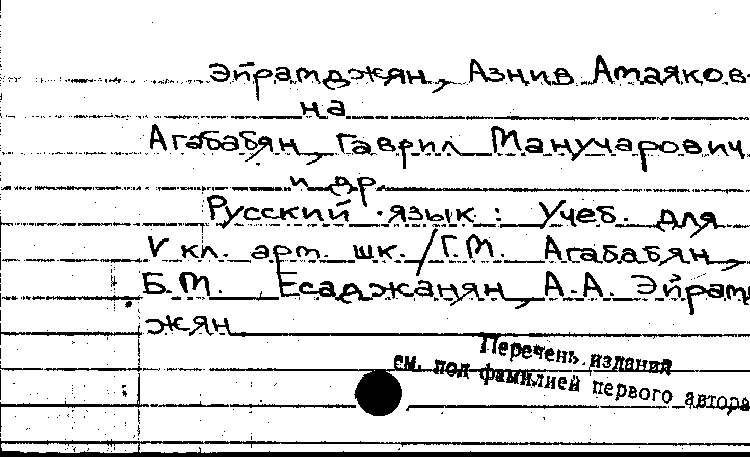 Эйрамджян, Азнив Амаяков-
на
Агабабян, Гаврил Манучарович
и др.
Русский язык: Учеб. для
V кл. арм. шк. / Г.М. Агабабян,
Б.М. Есаджанян, А.А. Эйрам
жян.
Перечень изданий
см. под фамилией первого автора